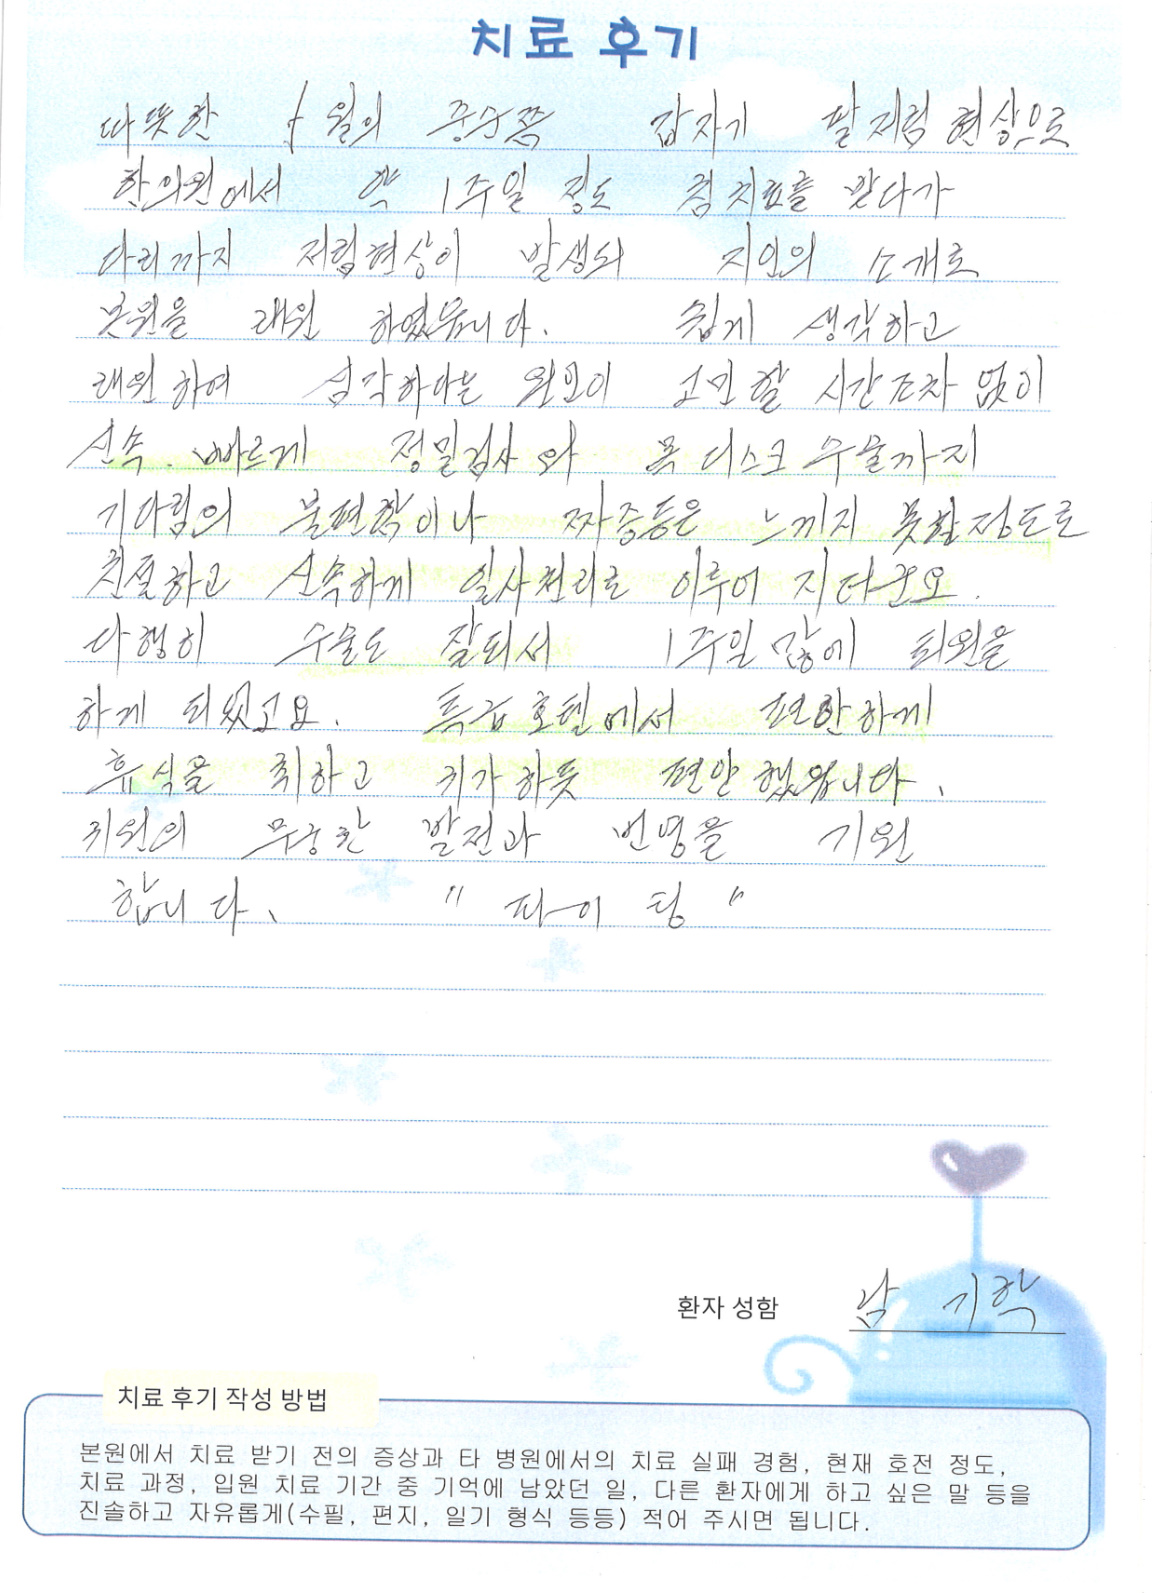 치료 후기
따뜻한 월의 중순쯤 갑자기 팔저림 현상으로
한의원에서 약 1주일 정도 침치료를 받다가
다리까지 저림현상이 발생되 지인의 소개로
본원을 래원 하였읍니다. 쉽게 생각하고
래원하여 심각하다는 원인이 고민할 시간조차 없이
신속. 빠르게 정밀검사와 목디스크 수술까지
기다림의 불편함이나 짜증등은 느끼지 못할정도로
친절하고 신속하게 일사천리로 이루어 지더군요.
다행히 수술도 잘되서 1주일많에 퇴원을
하게 되었고요. 특급호텔에서 편안하게
휴식을 취하고 귀가하듯 편안했읍니다.
귀원의 무궁한 발전과 번영을 기원
합니다. " 파이팅 "
환자 성함 남 기학
치료 후기 작성 방법
본원에서 치료 받기 전의 증상과 타 병원에서의 치료 실패 경험, 현재 호전 정도,
치료 과정, 입원 치료 기간 중 기억에 남았던 일, 다른 환자에게 하고 싶은 말 등을
진솔하고 자유롭게(수필, 편지, 일기 형식 등등) 적어 주시면 됩니다.